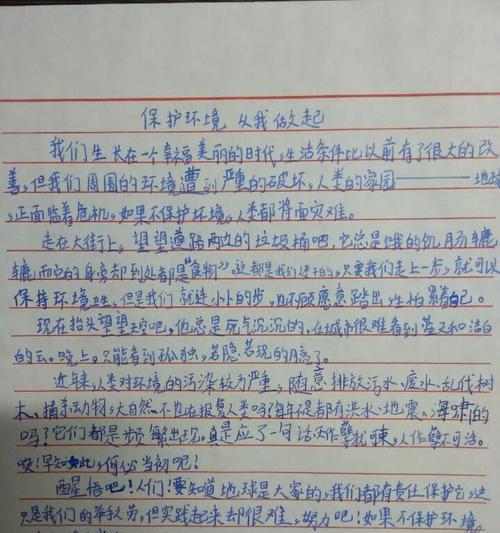 保护环境 从我做起
我们生长在一个幸福美丽的时代,生活条件比以前有了很大的改
善,但我们周围的环境遭到严重的破坏,人类的家园———地球
正面临着危机,如果不保护环境,人类都将面灾难。
走在大街上,望望道路两边的垃圾桶吧,它总是饿的饥肠辘
辘,而它的身旁却到处都是“食物”,这都是我们干的,只要我们走上一步,就可以
保持环境卫生,但是我们就连小小的步,也不顾愿意踏出,生怕累着自己。
现在抬头望望天空吧,他总是死气沉沉的,在城市很难看到蓝天和洁白
的云。晚上,只能看到孤独,若隐若现的月亮了。
近年来,人类对环境的污染较为严重,随意排放污水、废水、乱伐树
木、捕杀动物,大自然不也在报复人类吗?每年不是都有洪水、地震、海啸的
吗?它们都是频繁出现。真是应了一句话天作孽犹可竦,人作孽不可活。
唉!早知如此,何必当初呢!
醒悟吧!人们!要知道地球是大家的,我们都有责任保护它,这
只是我们的举手之劳,但实践起来却很难,努力吧!如果不保护环境,